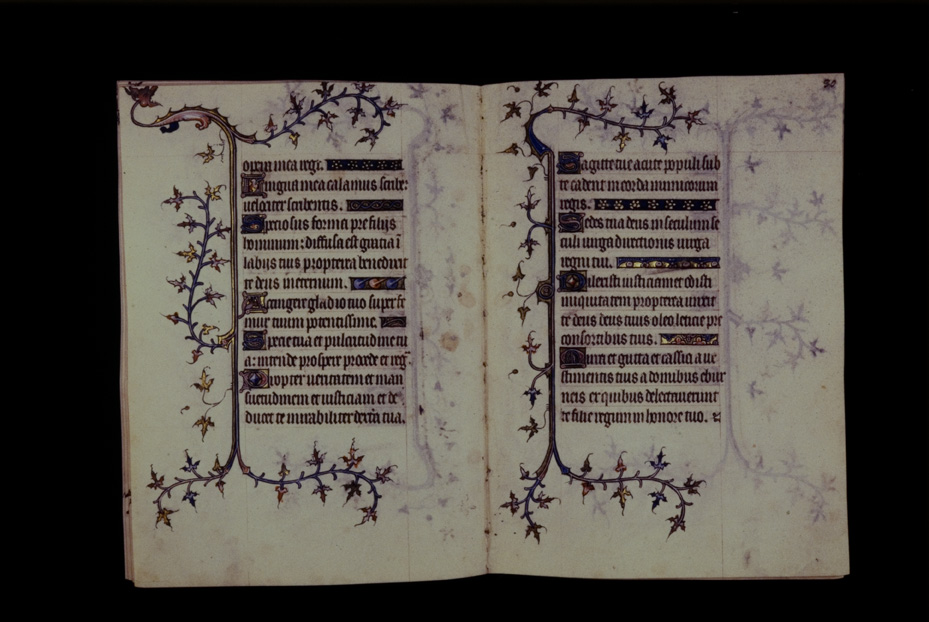 opera mea regi.
Lingua mea calamus scribe:
uelociter scribentis.
Speciosus forma pre filijs
hominum: diffusa est gratia i
labijs tuis propterea benedixit
te deus in eternum.
Accingere gladio tuo super fe
mur tuum potentissime.
Specie tua et pulcritudine tu
a: intende prospere procede et reg
Propter ueritatem et man
suetudinem et iusticiam et de
ducet te mirabiliter dextra tua.
Sagitte tue acute populi sub
te cadent in corda inimicorum
regis.
Sedes tua deus in seculum se
culi uirga directionis uirga
regni tui.
Dilexisti iusticiam et odisti
iniquitatem propterea unxit
te deus deus tuus oleo leticie pre
consortibus tuis.
Mirra et gutta et cassia a ue
stimentis tuis a domibus ebur
neis ex quibus delectauerunt
te filie regum in honore tuo.